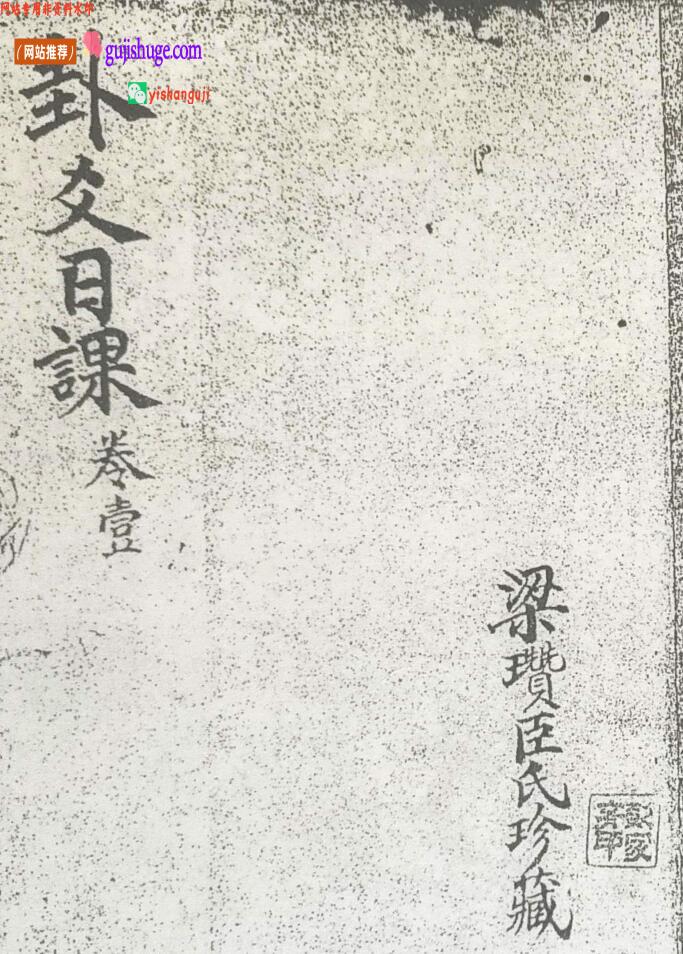 网站专用非资料水印
（网站推荐）
gujishuge.com
yishanguji
卦爻日課
卷壹
梁瓚臣氏珍藏